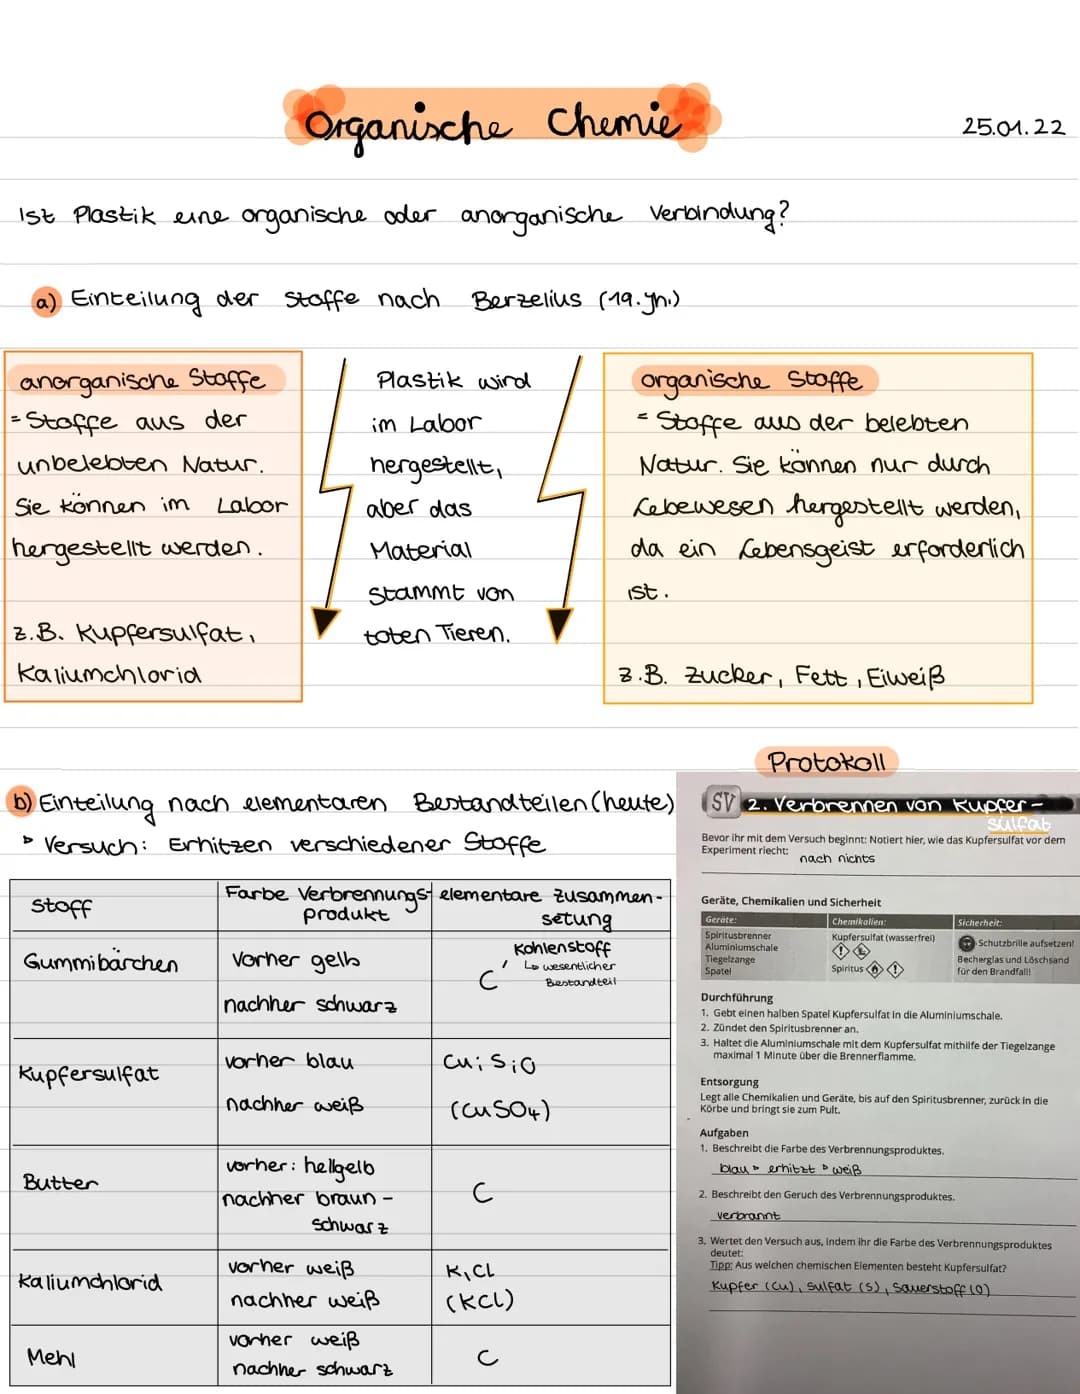 Organische Chemie
25.01.22
Ist Plastik eine organische oder anorganische Verbindung?
a) Einteilung der Stoffe nach Berzelius (19. Jh.)
anorganische Stoffe
= Stoffe aus der
unbelebten Natur.
Sie können im Labor
hergestellt werden.
z.B. Kupfersulfat,
Kaliumchlorid
Plastik wird
im Labor
hergestellt,
aber das
Material
stammt von
toten Tieren.
organische Stoffe
= Stoffe aus der belebten
Natur. Sie können nur durch
Lebewesen hergestellt werden,
da ein Lebensgeist erforderlich
ist.
z.B. Zucker, Fett, Eiweiß
b) Einteilung nach elementaren Bestandteilen (heute)
Versuch: Erhitzen verschiedener Stoffe
Stoff
Farbe Verbrennungs-
produkt
elementare Zusammen-
setung
Gummibärchen
vorher gelb
nachher schwarz
Kohlenstoff
↳ wesentlicher
Bestandteil
C
Kupfersulfat
vorher blau
nachher weiß
Cu; S; O
(CuSO4)
Butter
vorher: hellgelb
nachher braun-
schwarz
C
Kaliumchlorid
vorher weiß
nachher weiß
K, Cl
(KCl)
Mehl
vorher weiß
nachher schwarz
C
Protokoll
SV 2. Verbrennen von Kupfer-
sulfat
Bevor ihr mit dem Versuch beginnt: Notiert hier, wie das Kupfersulfat vor dem
Experiment riecht:
nach nichts
Geräte, Chemikalien und Sicherheit
Geräte:
Chemikalien:
Sicherheit:
Spiritusbrenner
Aluminiumschale
Tiegelzange
Spatel
Kupfersulfat (wasserfrei)
Spiritus
Schutzbrille aufsetzen!
Becherglas und Löschsand
für den Brandfall!
Durchführung
1. Gebt einen halben Spatel Kupfersulfat in die Aluminiumschale.
2. Zündet den Spiritusbrenner an.
3. Haltet die Aluminiumschale mit dem Kupfersulfat mithilfe der Tiegelzange
maximal 1 Minute über die Brennerflamme.
Entsorgung
Legt alle Chemikalien und Geräte, bis auf den Spiritusbrenner, zurück in die
Körbe und bringt sie zum Pult.
Aufgaben
1. Beschreibt die Farbe des Verbrennungsproduktes.
blau ▹ erhitzt ▹ weiß
2. Beschreibt den Geruch des Verbrennungsproduktes.
verbrannt
3. Wertet den Versuch aus, indem ihr die Farbe des Verbrennungsproduktes
deutet:
Tipp: Aus welchen chemischen Elementen besteht Kupfersulfat?
Kupfer (Cu), Sulfat (S), Sauerstoff (O)